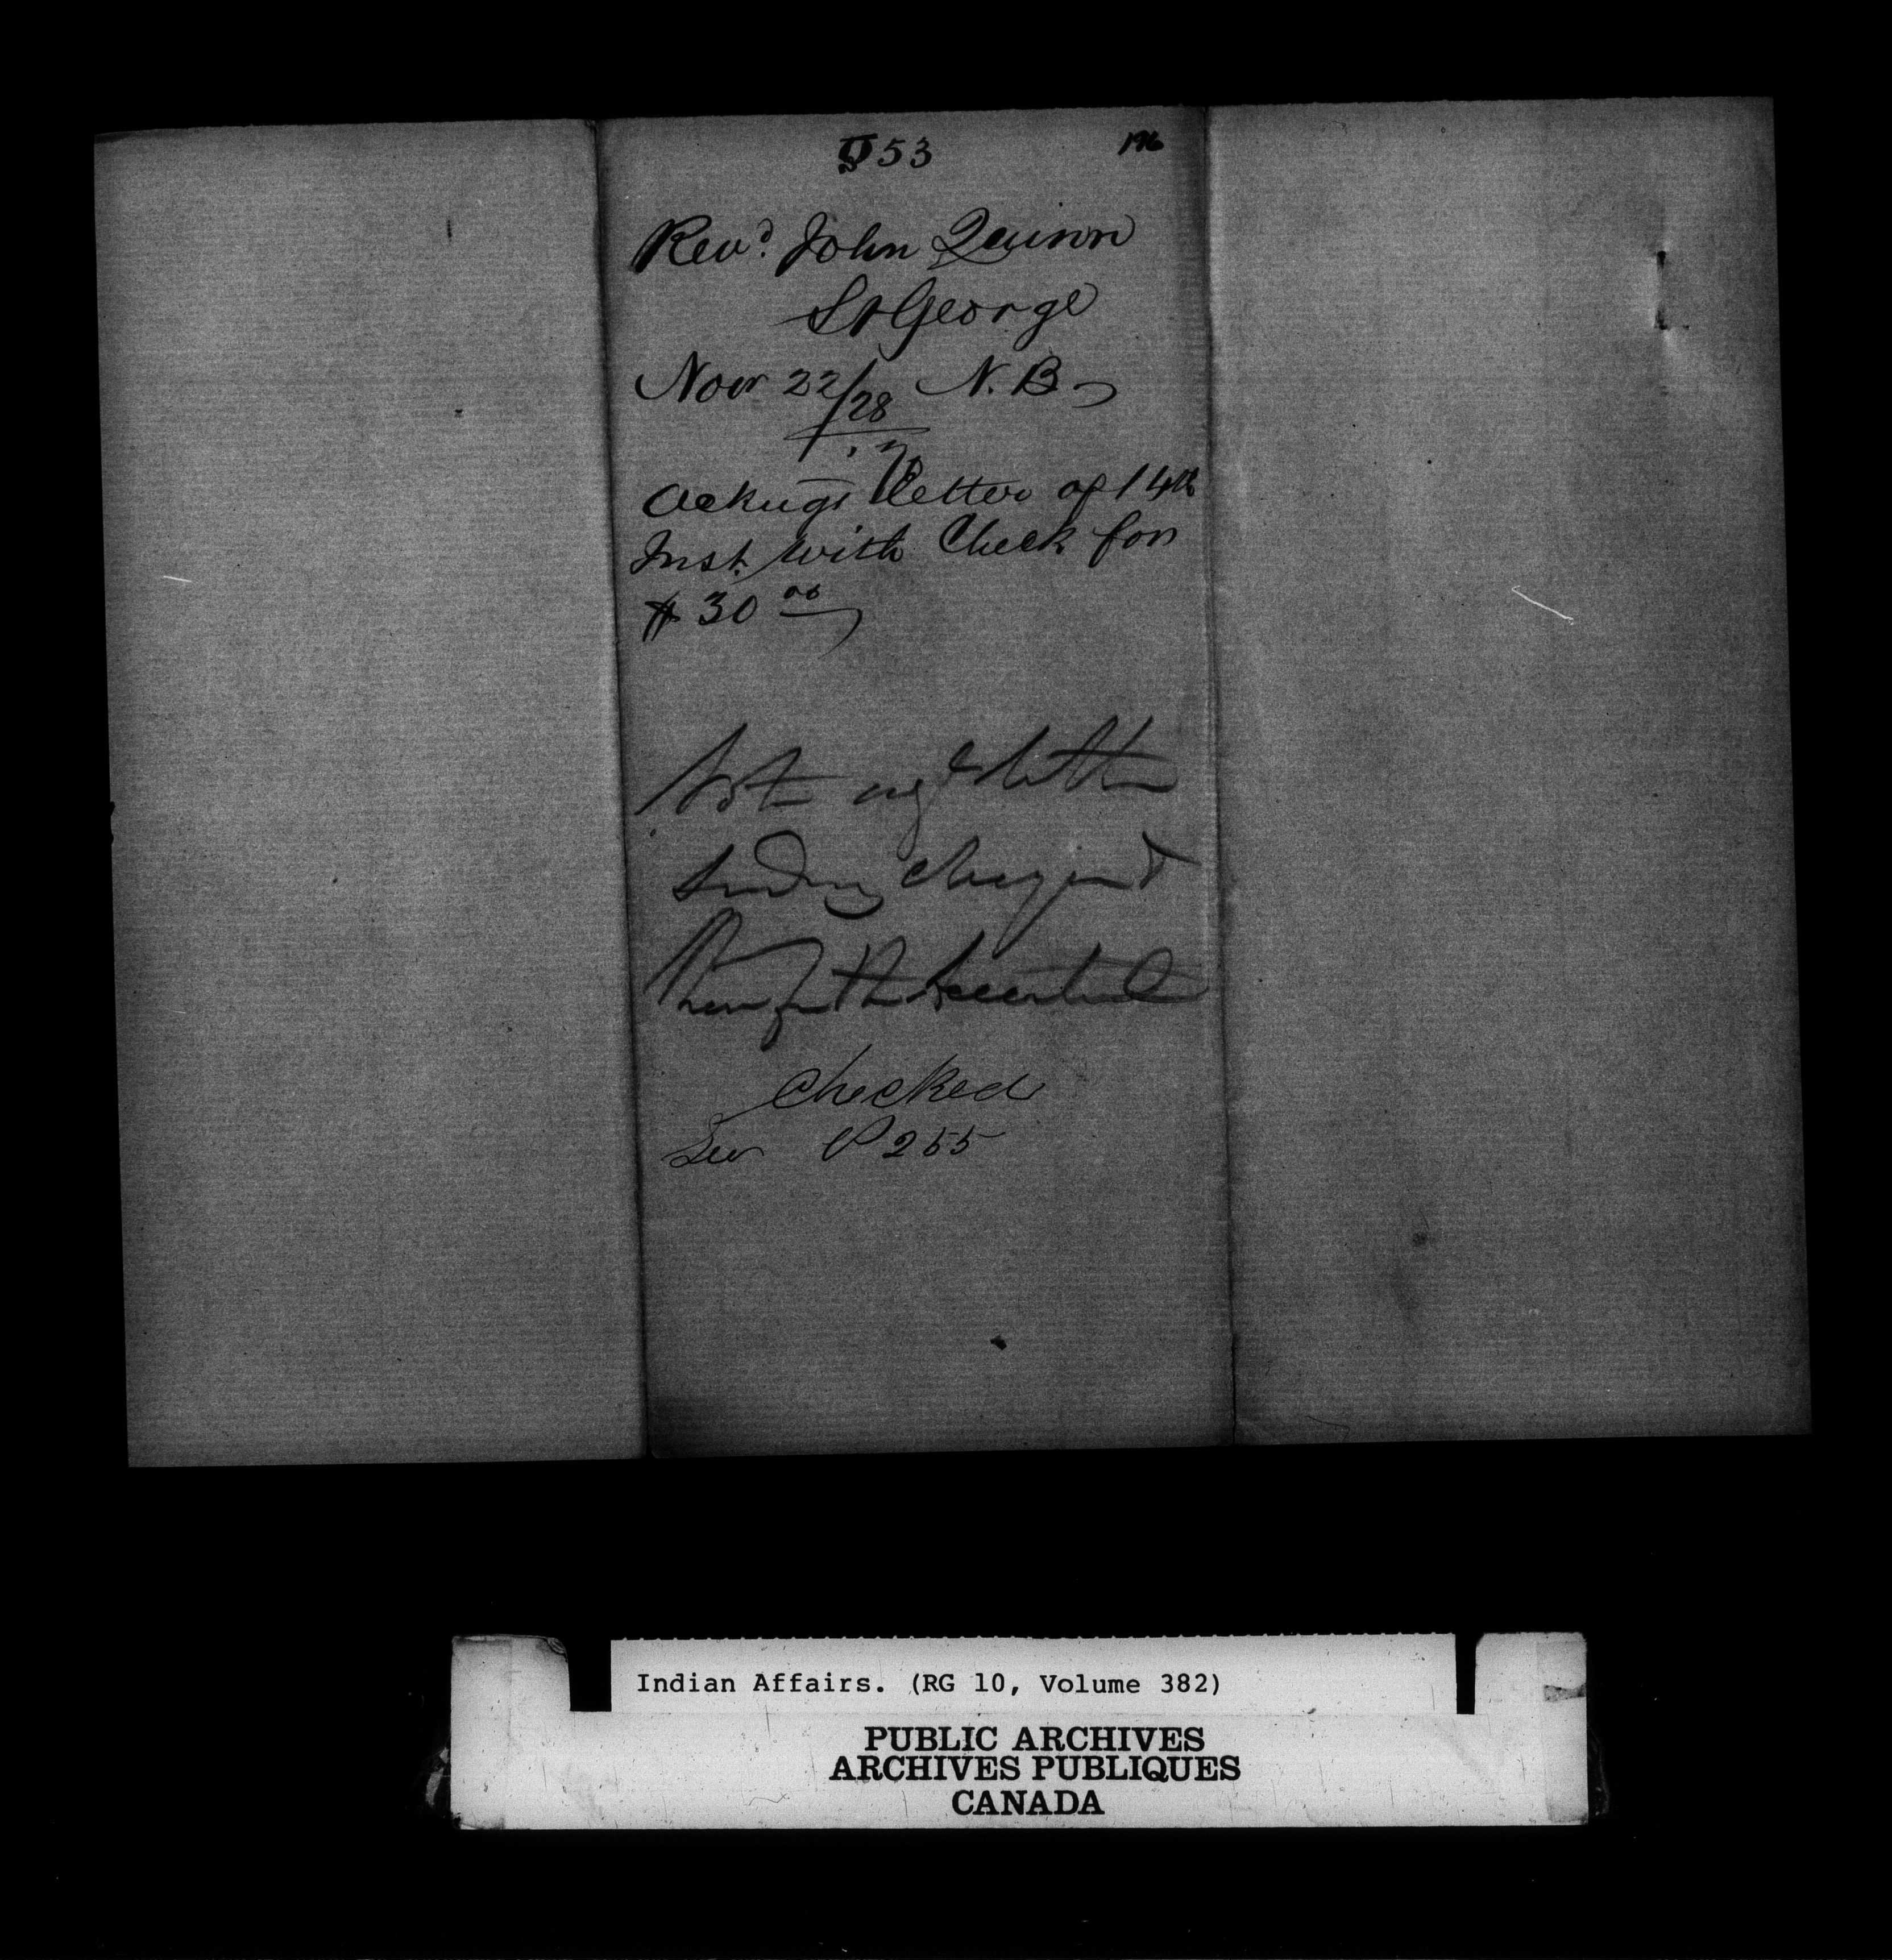 53
196
Revd. John Quinn
St George
Novr 22/28 N.B.
Ackngs letter of 14th
Inst. with Check for
$30 00
Note
letter
sending
for the
Checked
See P 255
Indian Affairs. (RG 10, Volume 382)
PUBLIC ARCHIVES
ARCHIVES PUBLIQUES
CANADA